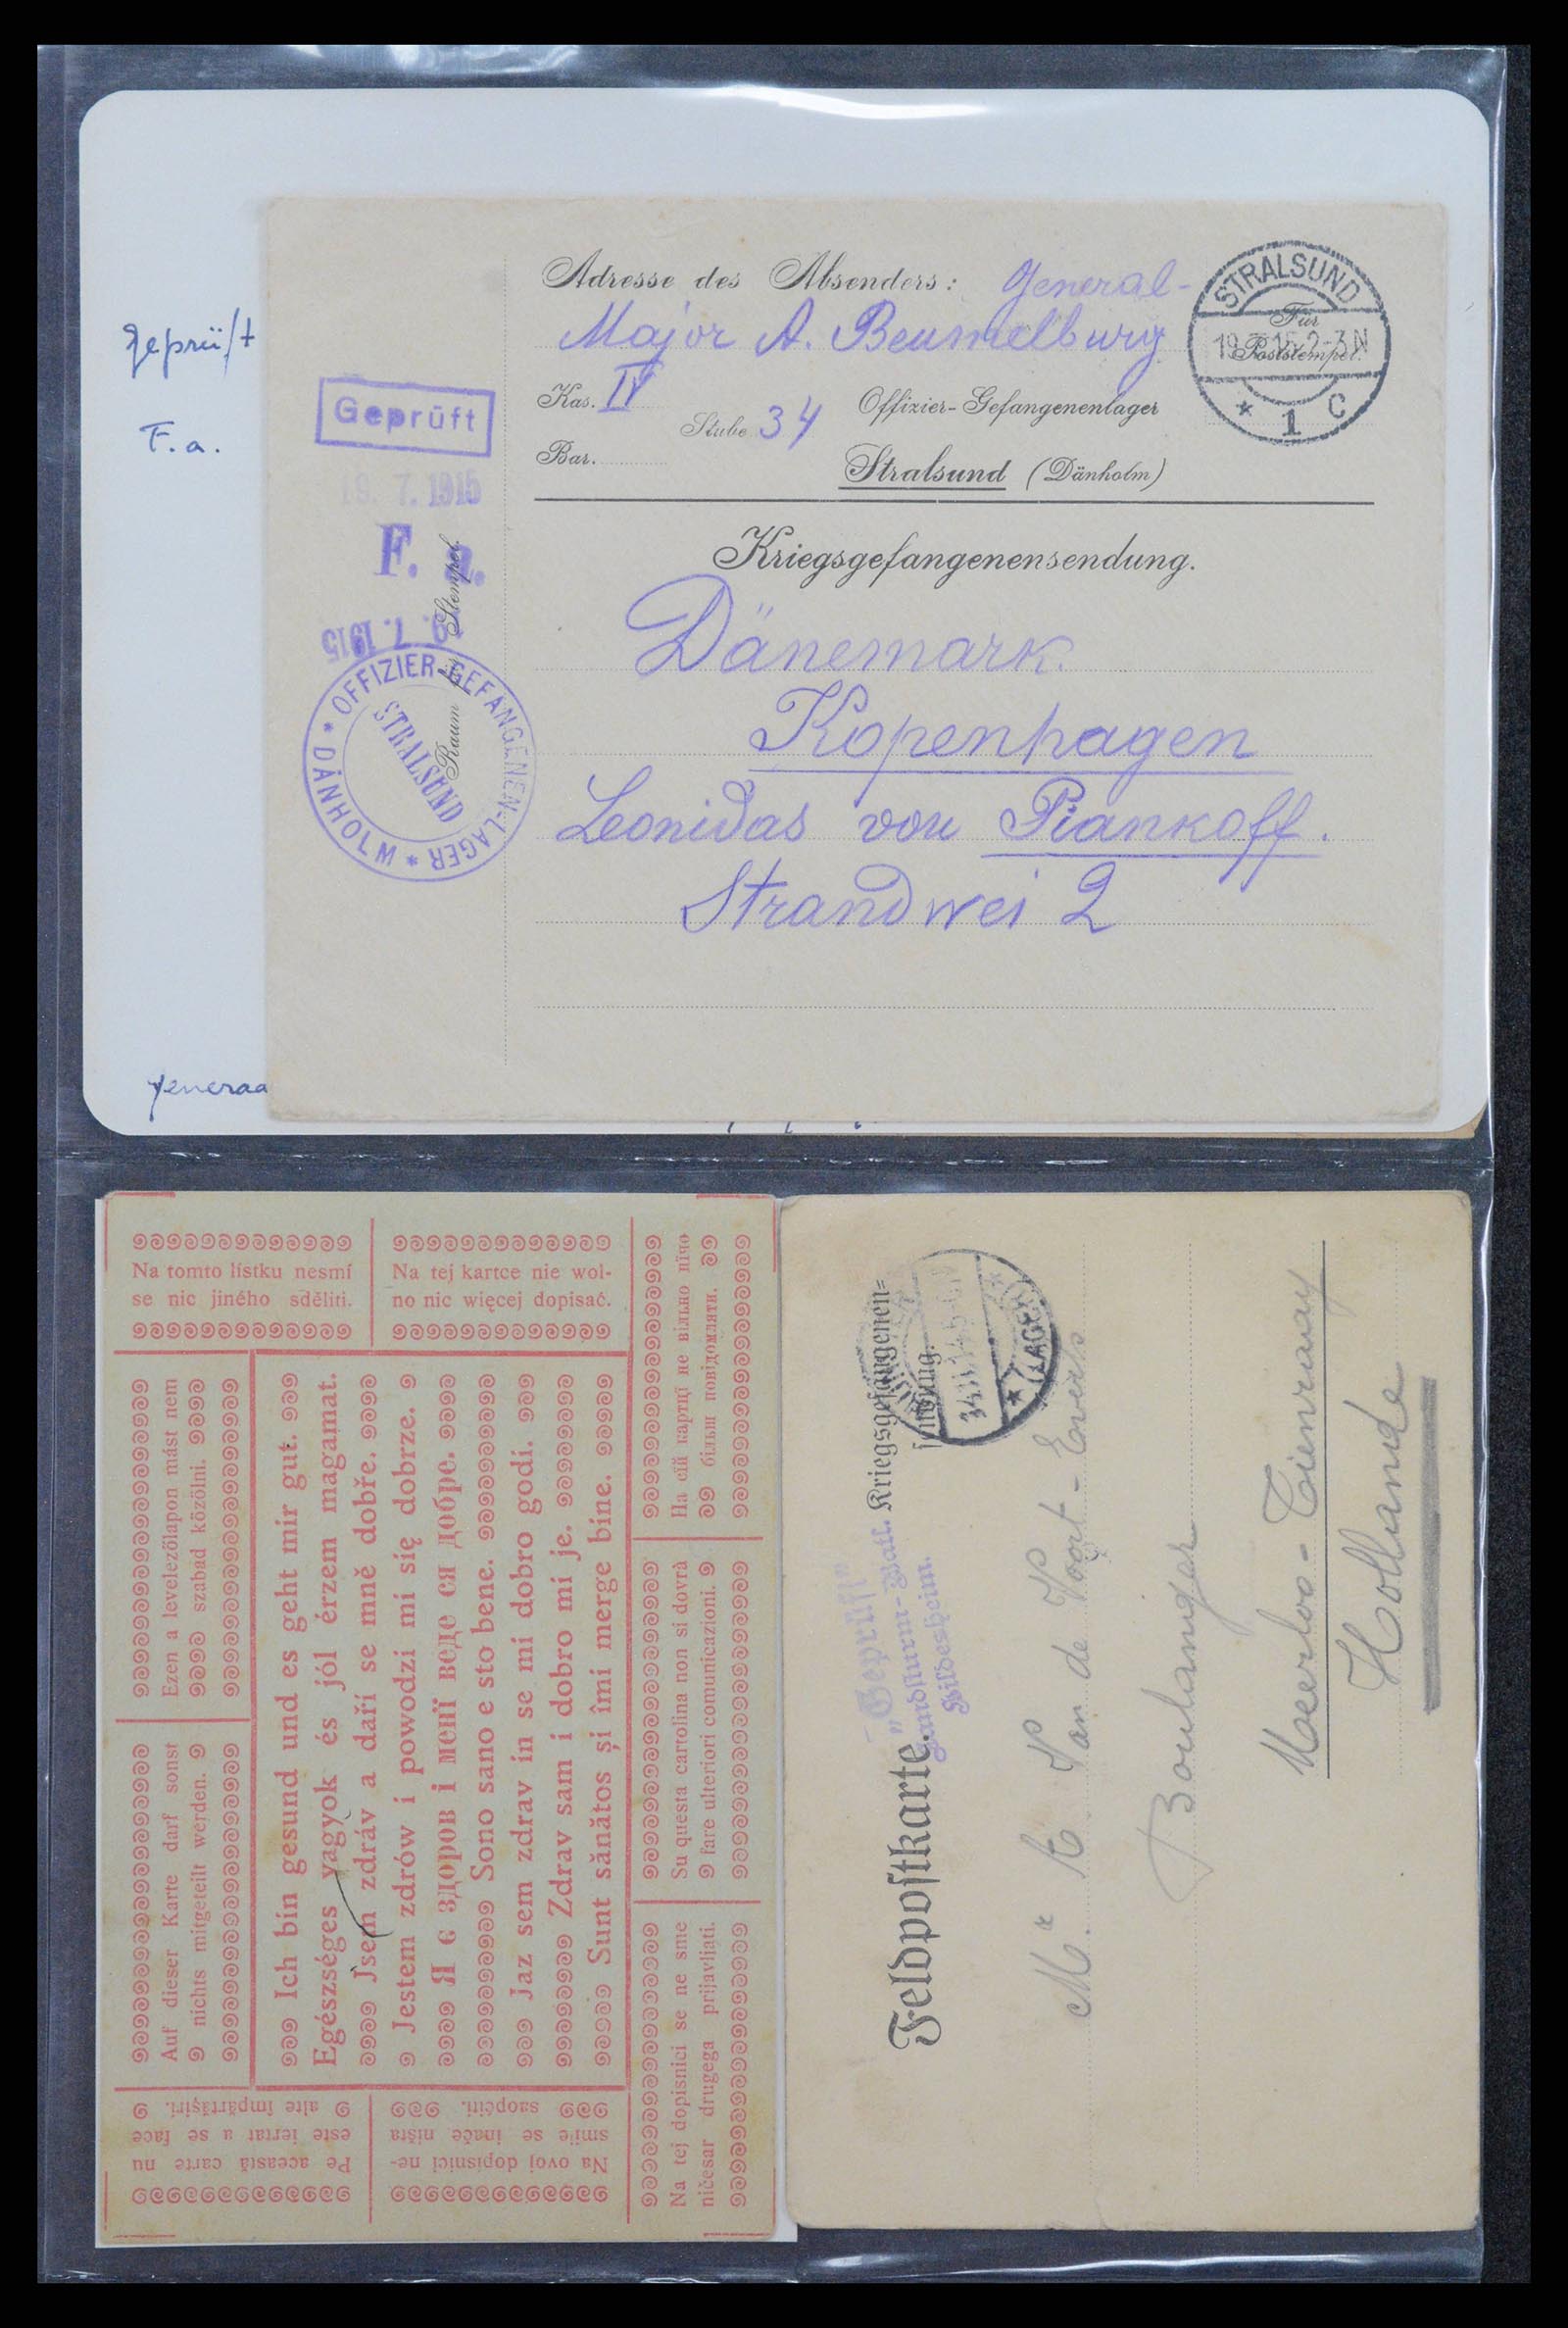 geprüft
F. a.
generaa
Adresse des Absenders: General-
Major A. Beumelburg
Kas. IV
Stube 34
Offizier-Gefangenenlager
Bar.
Stralsund (Dänholm)
Kriegsgefangenensendung.
Dänemark.
Kopenhagen
Leonidas von Piankoff.
Strandwei 2
STRALSUND
Für
Poststempel.
* 1 C
Geprüft
19. 7. 1915
F. a.
Raum für Stempel.
19. 7. 1915
* OFFIZIER-GEFANGENEN-LAGER * DÄNHOLM
STRALSUND
Na tomto lístku nesmí
se nic jiného sděliti.
Na tej kartce nie wol-
no nic więcej dopisać.
Ezen a levelezőlapon mást nem
szabad közölni.
Auf dieser Karte darf sonst
nichts mitgeteilt werden.
Ich bin gesund und es geht mir gut.
Egészséges vagyok és jól érzem magamat.
Jsem zdráv a daří se mně dobře.
Jestem zdrów i powodzi mi się dobrze.
Я є здоров і мені веде ся добре.
Sono sano e sto bene.
Jaz sem zdrav in se mi dobro godi.
Zdrav sam i dobro mi je.
Sunt sănătos și îmi merge bine.
На сїй картцї не вільно нїчо
більш повідомляти.
Su questa cartolina non si dovrà
fare ulteriori comunicazioni.
Na tej dopisnici se ne sme
ničesar drugega prijavljati.
Pe această carte nu
este iertat a se face
alte împărtășiri.
Na ovoj dopisnici ne-
smije se inače ništa
saopćiti.
Feldpostkarte.
Kriegsgefangenen=
sendung.
(LAGER)
"Geprüft"
Landsturm-Batl.
Hildesheim.
Mr. A Van de Voort - Everts
Boulanger
Meerloo - Tienraay
Hollande